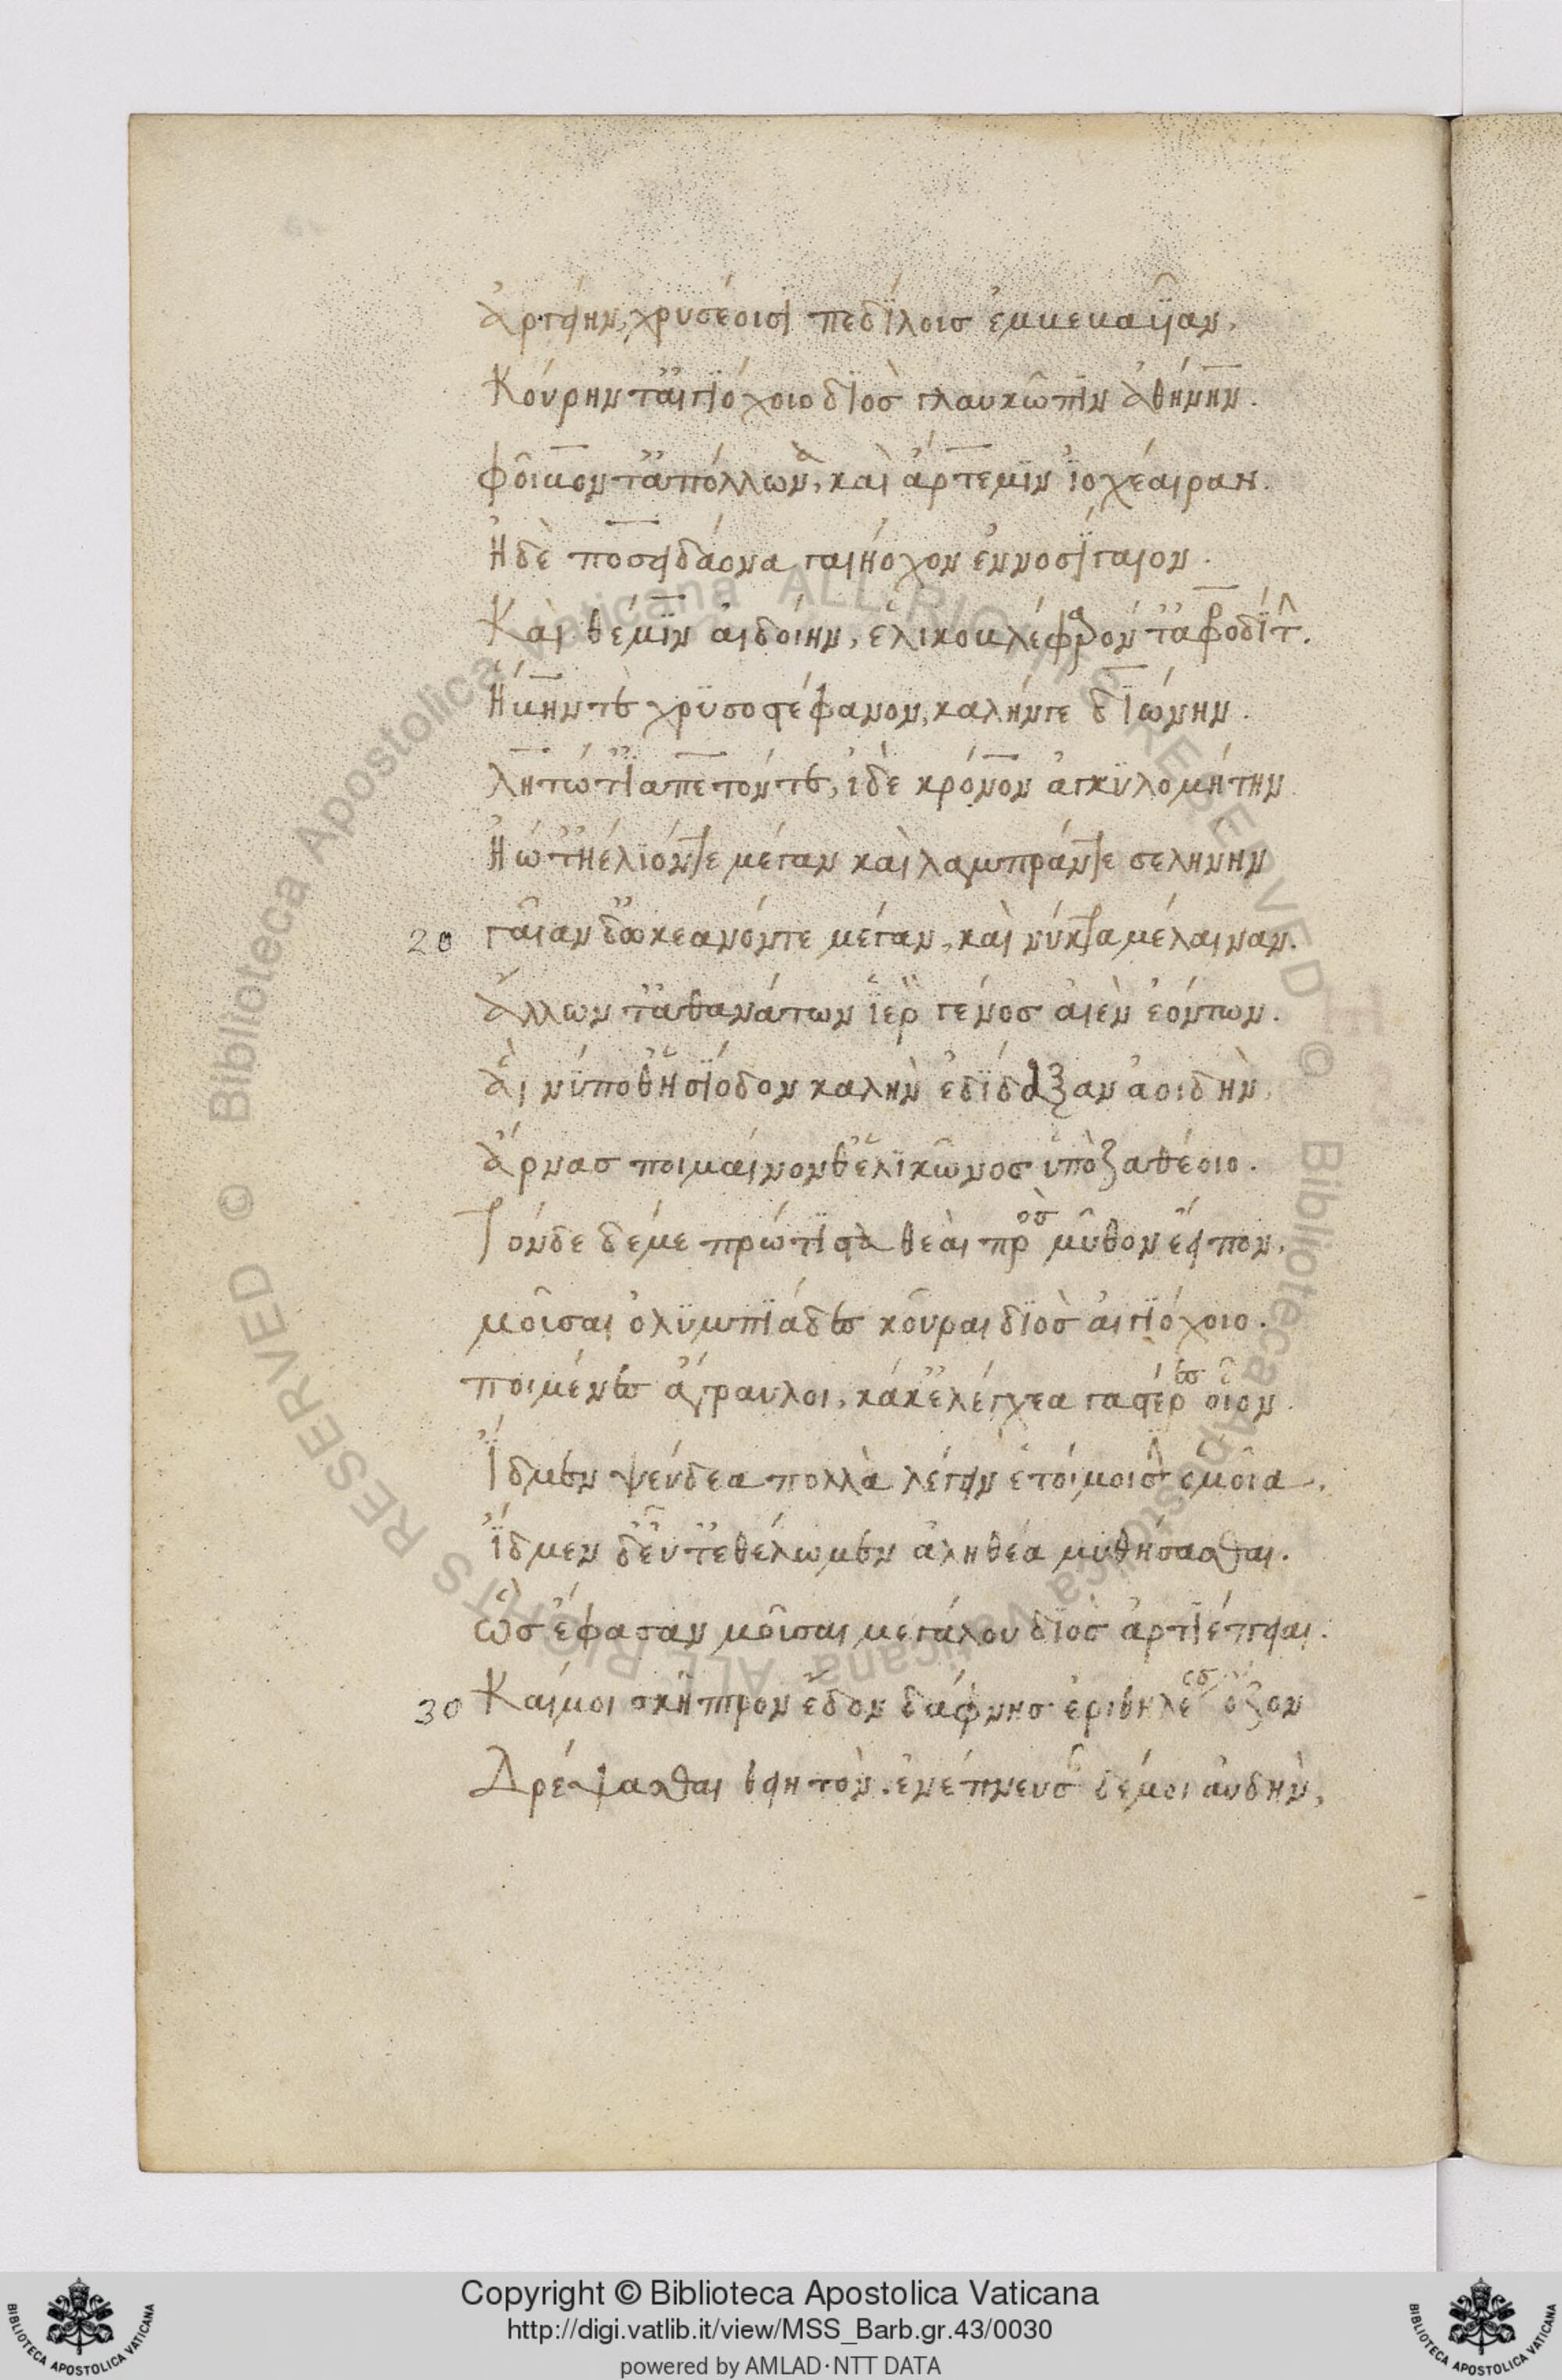 Ἀργείην, χρυσέοισι πεδίλοις ἐμβεβαυῖαν,
Κούρην τ' αἰγιόχοιο διὸς γλαυκῶπιν ἀθήνην.
φοῖβον τ' ἀπόλλωνα, καὶ ἄρτεμιν ἰοχέαιραν.
Ἠδὲ ποσειδάονα γαιήοχον ἐννοσίγαιον.
Καὶ θέμιν αἰδοίην, ἑλικοβλέφαρον τ' ἀφροδίτ.
Ἥβην τε χρυσοστέφανον, καλήν τε διώνην.
λητώ τ' ἰαπετόν τε, ἰδὲ κρόνον ἀγκυλομήτην
Ἠώ τ' ἠέλιόν τε μέγαν καὶ λαμπράν τε σελήνην
20 γαῖαν δ' ὠκεανόν τε μέγαν, καὶ νύκτα μέλαιναν.
Ἄλλων τ' ἀθανάτων ἱερ γένος αἰὲν ἐόντων.
Αἵ νύ ποθ' ἡσίοδον καλὴν ἐδίδαξαν ἀοιδὴν,
Ἄρνας ποιμαίνονθ' ἑλικῶνος ὑπὸ ζαθέοιο.
Τόνδε δέ με πρώτιστα θεαὶ πρὸς μῦθον ἔειπον,
μοῦσαι ὀλυμπιάδες κοῦραι διὸς αἰγιόχοιο.
ποιμένες ἄγραυλοι, κάκ' ἐλέγχεα γαστέρες οἶον
Ἴδμεν ψεύδεα πολλὰ λέγειν ἐτοίμοισιν ὁμοῖα.
Ἴδμεν δ' εὖτ' ἐθέλωμεν ἀληθέα μυθήσασθαι.
Ὣς ἔφασαν μοῦσαι μεγάλου διὸς ἀρτιέπειαι.
30 Καί μοι σκῆπτρον ἔδον δάφνης ἐριθηλέος ὄζον
Δρέψασθαι θηητὸν. ἐνέπνευσ δέ μοι αὐδὴν,
Copyright © Biblioteca Apostolica Vaticana
http://digi.vatlib.it/view/MSS_Barb.gr.43/0030
powered by AMLAD·NTT DATA
BIBLIOTECA APOSTOLICA VATICANA
BIBLIOTECA APOSTOLICA VATICANA
© Biblioteca Apostolica Vaticana ALL RIGHTS RESERVED
© Biblioteca Apostolica Vaticana ALL RIGHTS RESERVED